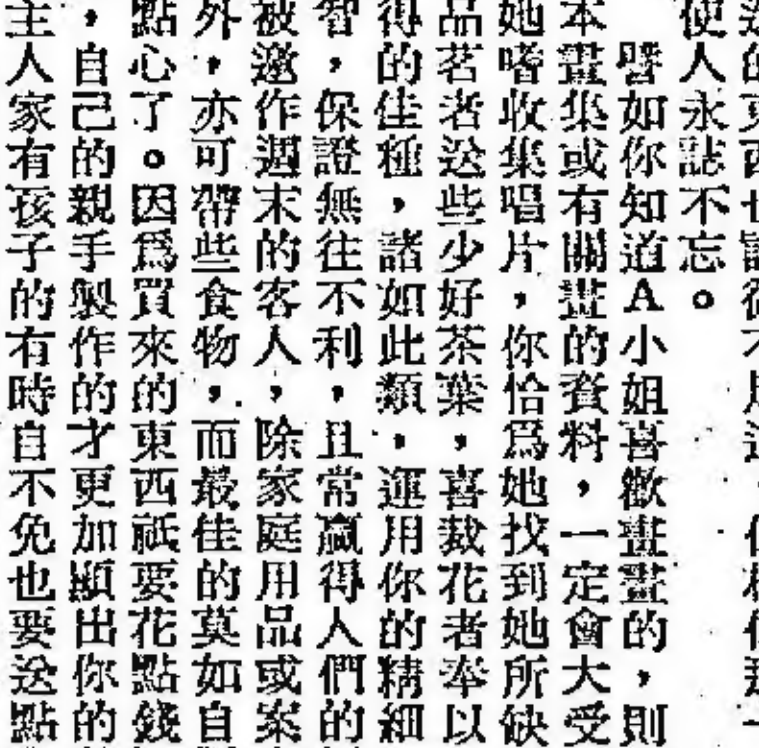 使人永誌不忘。
譬如你知道A小姐喜歡畫畫的，則
本畫集或有關畫的資料，一定會大受
她嗜收集唱片，你恰爲她找到她所缺
品茗者送些少好茶葉，喜栽花者奉以
得的佳種，諸如此類，運用你的精細
智，保證無往不利，且常贏得人們的
被邀作週末的客人，除家庭用品或案
外，亦可帶些食物，而最佳的莫如自
點心了。因爲買來的東西祇要花點錢
，自己的親手製作的才更加顯出你的
主人家有孩子的有時自不免也要送點